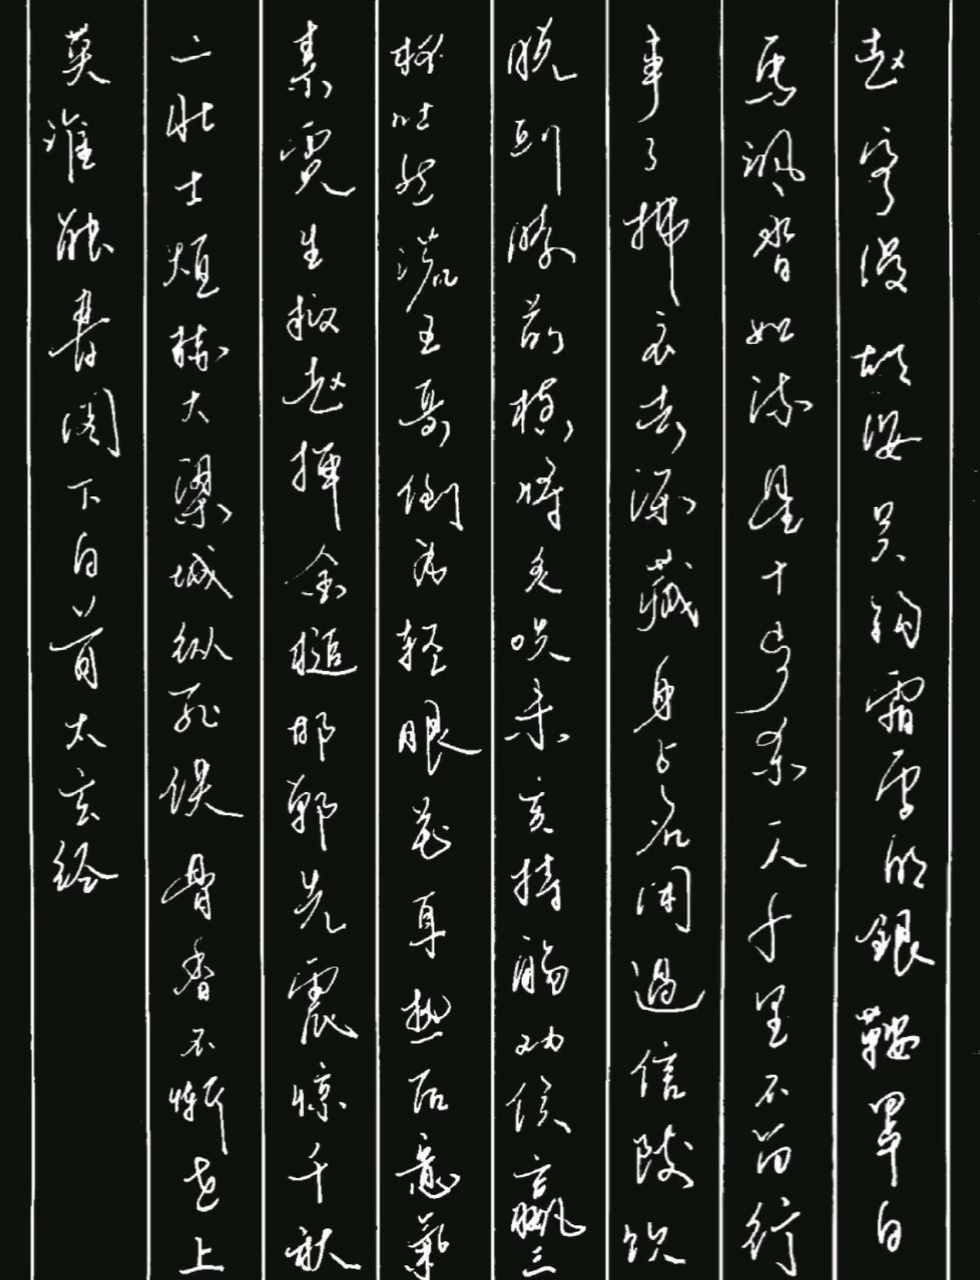 赵客缦胡缨吴钩霜雪明銀鞍罩白
馬飒沓如流星十步杀一人千里不留行
事了拂衣去深藏身与名闲過信陵饮
脱剑膝前横将炙啖朱亥持觞劝侯嬴三
杯吐然诺五岳倒为轻眼花耳热后意氣
素霓生救赵挥金槌邯郸先震惊千秋
二壮士烜赫大梁城纵死侠骨香不惭世上
英谁能書阁下白首太玄经